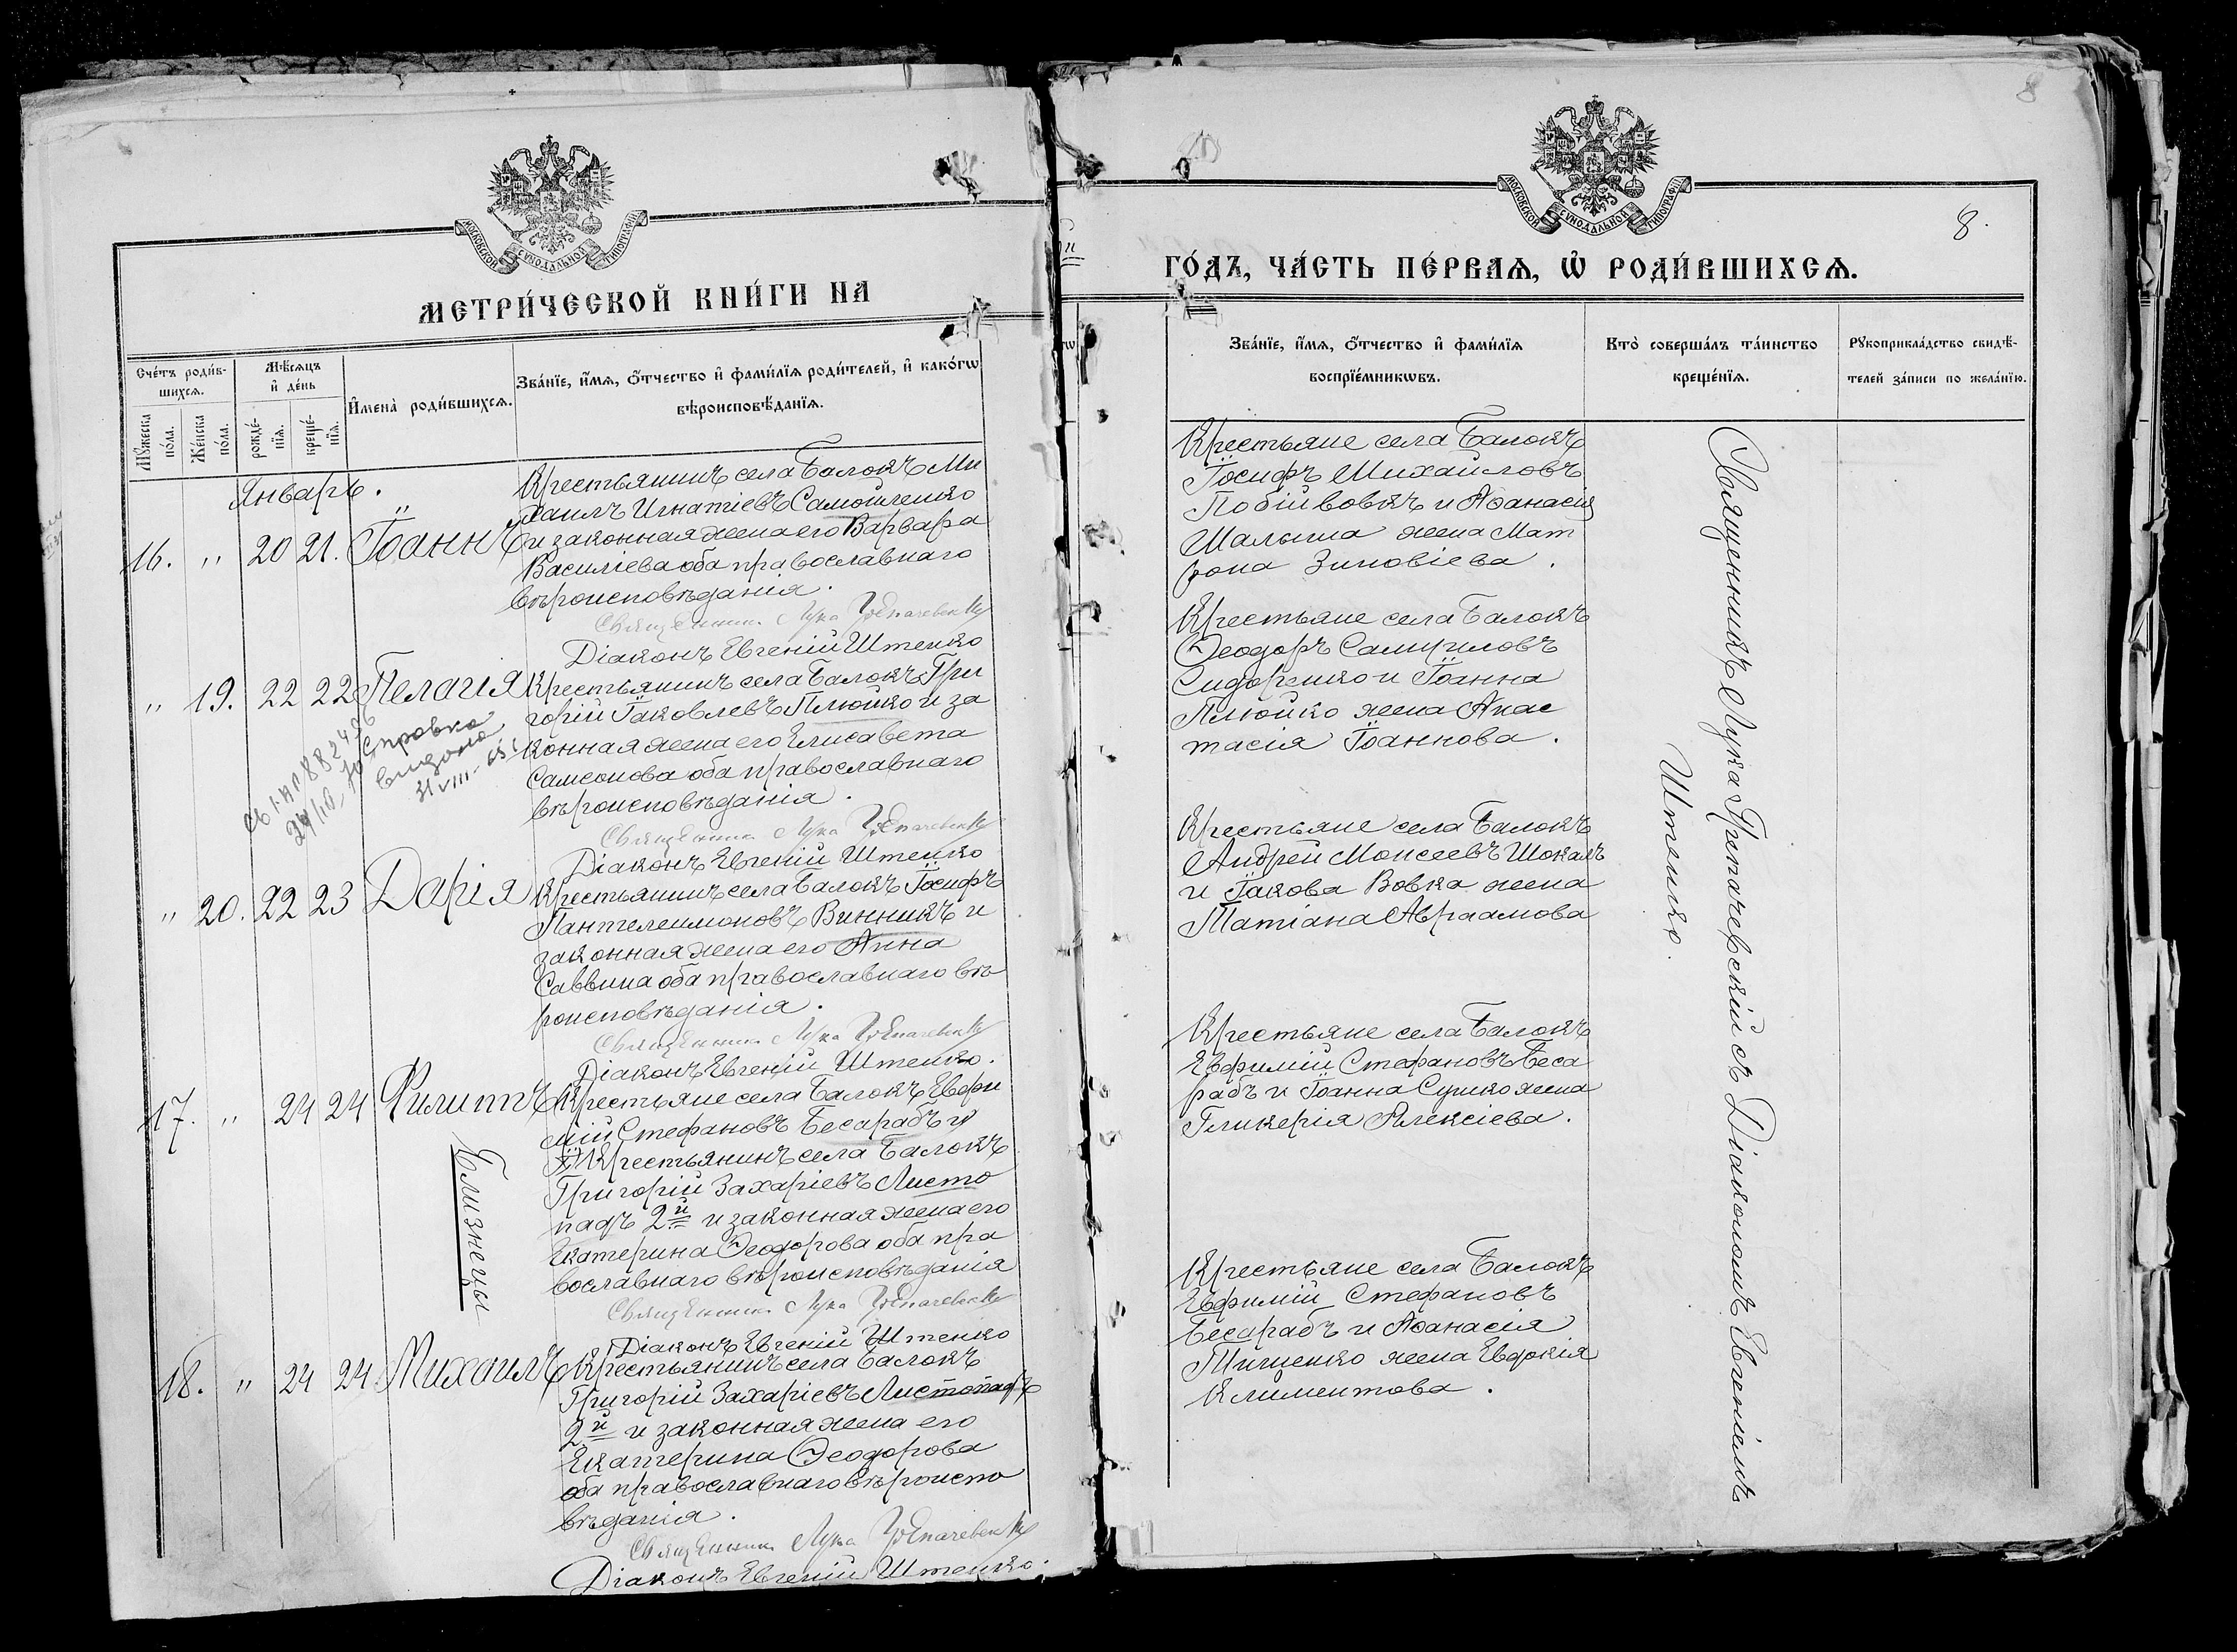 МОСКОВСКОЙ СѴНОДАЛЬНОЙ ТИПОГРАФІИ
МЕТРИ́ЧЕСКОЙ КНИ́ГИ НА
Сче́тъ роди́в-
шихсѧ.
Мꙋ́жеска
по́ла.
Же́нска
по́ла.
Мѣ́сѧцъ
и҆ де́нь
рожде́-
нїѧ.
креще́-
нїѧ.
И҆мена̀ роди́вшихсѧ.
Зва́нїе, и҆́мѧ, о҆́тчество и҆ фами́лїѧ роди́телей, и҆ како́гѡ
вѣроисповѣ́данїѧ.
Январь.
16. " 20 21. Іоаннъ
Крестьянинъ села Балокъ Ми
хаилъ Игнатіевъ Самойленко
и законная жена его Варвара
Василіева оба православнаго
вѣроисповѣданія.
Священникъ Лука
Діаконъ Евгеній Штепко
" 19. 22 22 Пелагія
Крестьянинъ села Балокъ Гри
горій Іаковлевъ Плюйко и за
конная жена его Елисавета
Самсонова оба православнаго
вѣроисповѣданія.
Священникъ Лука
Діаконъ Евгеній Штепко
справка
видана
31 VIII-65
" 20. 22 23 Дарія
Крестьянинъ села Балокъ Іосифъ
Пантелеимоновъ Винникъ и
законная жена его Анна
Саввина оба православнаго вѣ
роисповѣданія.
Священникъ Лука
Діаконъ Евгеній Штепко.
17. " 24 24 Филиппъ
Близнецы
Крестьяне села Балокъ Евфи
мій Стефановъ Бесарабъ и
Крестьянинъ села Балокъ
Григорій Захаріевъ Листо
падъ 2й и законная жена его
Екатерина Ѳеодорова оба пра
вославнаго вѣроисповѣданія
Священникъ Лука
Діаконъ Евгеній Штепко
18. " 24 24 Михаилъ
Крестьянинъ села Балокъ
Григорій Захаріевъ Листопадъ
2й и законная жена его
Екатерина Ѳеодорова
оба православнаго вѣроиспо
вѣданія.
Священникъ Лука
Діаконъ Евгеній Штепко.
8
МОСКОВСКОЙ СѴНОДАЛЬНОЙ ТИПОГРАФІИ
8.
ГО́ДЪ, ЧА́СТЬ ПЕ́РВАѦ, Ѽ РОДИ́ВШИХСѦ.
Зва́нїе, и҆́мѧ, о҆́тчество и҆ фами́лїѧ
воспрїе́мникѡвъ.
Кто̀ соверша́лъ та́инство
креще́нїѧ.
Рꙋкоприкла́дство свидѣ́-
телей за́писи по жела́нїю.
Крестьяне села Балокъ
Іосифъ Михайловъ
Побійвовкъ и Аѳанасія
Малыша жена Мат
рона Зиновіева.
Крестьяне села Балокъ
Ѳеодоръ
Сидоренко и Іоанна
Плюйко жена Анас
тасія Іоаннова.
Крестьяне села Балокъ
Андрей Моисеевъ Шокалъ
и Іакова Вовка жена
Татіана Авраамова
Крестьяне села Балокъ
Евфимій Стефановъ Беса
рабъ и Іоанна Сушко жена
Гликерія Алексіева.
Крестьяне села Балокъ
Евфимій Стефановъ
Бесарабъ и Аѳанасія
Тищенко жена Евдокія
Климентова.
Священникъ Лука съ Діакономъ Евгеніемъ
Штепко.